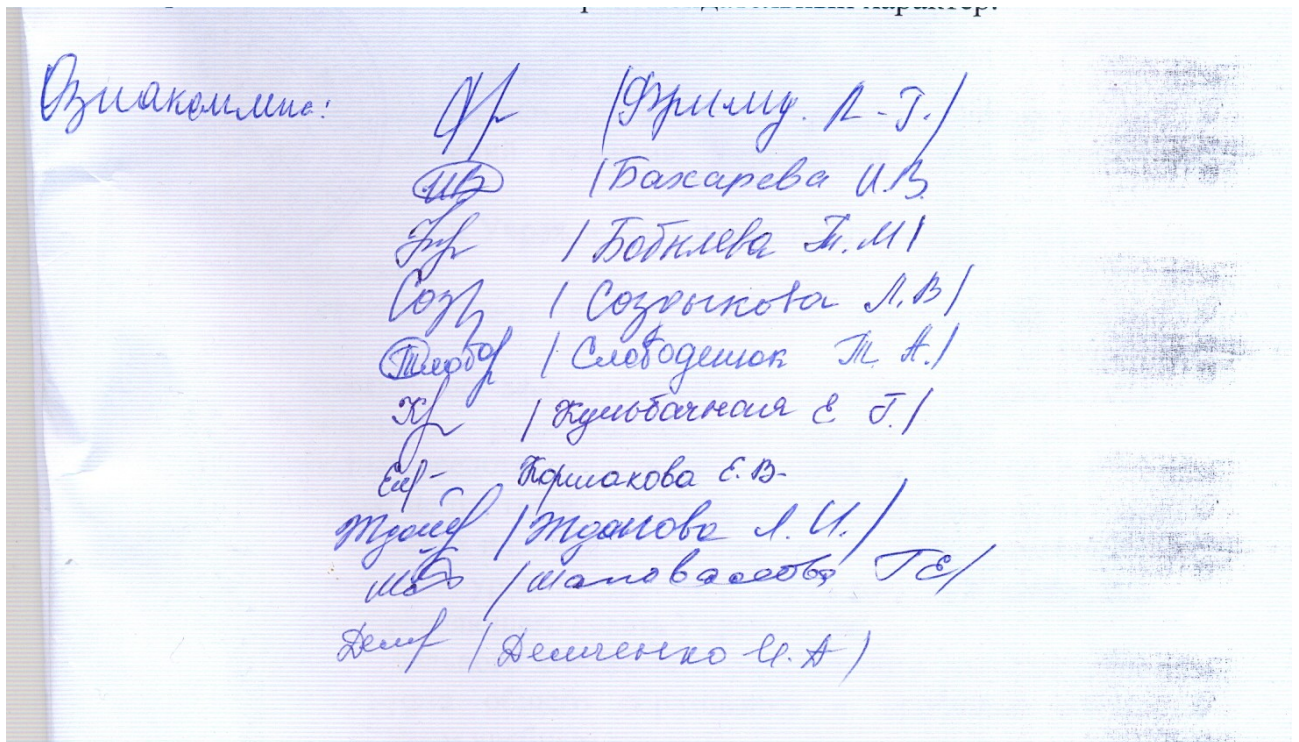 характер.
Ознакомлены:
/Фриму. Л.Г./
/Бахарева И.В.
/Бобнева Т.М/
/Создыкова Л.В/
/Слободенюк Т.А./
/Кульбачная Е Г./
Коршакова Е.В.
/Жданова Л.И./
/Шаповалова ГЕ/
/Демченко И.А/